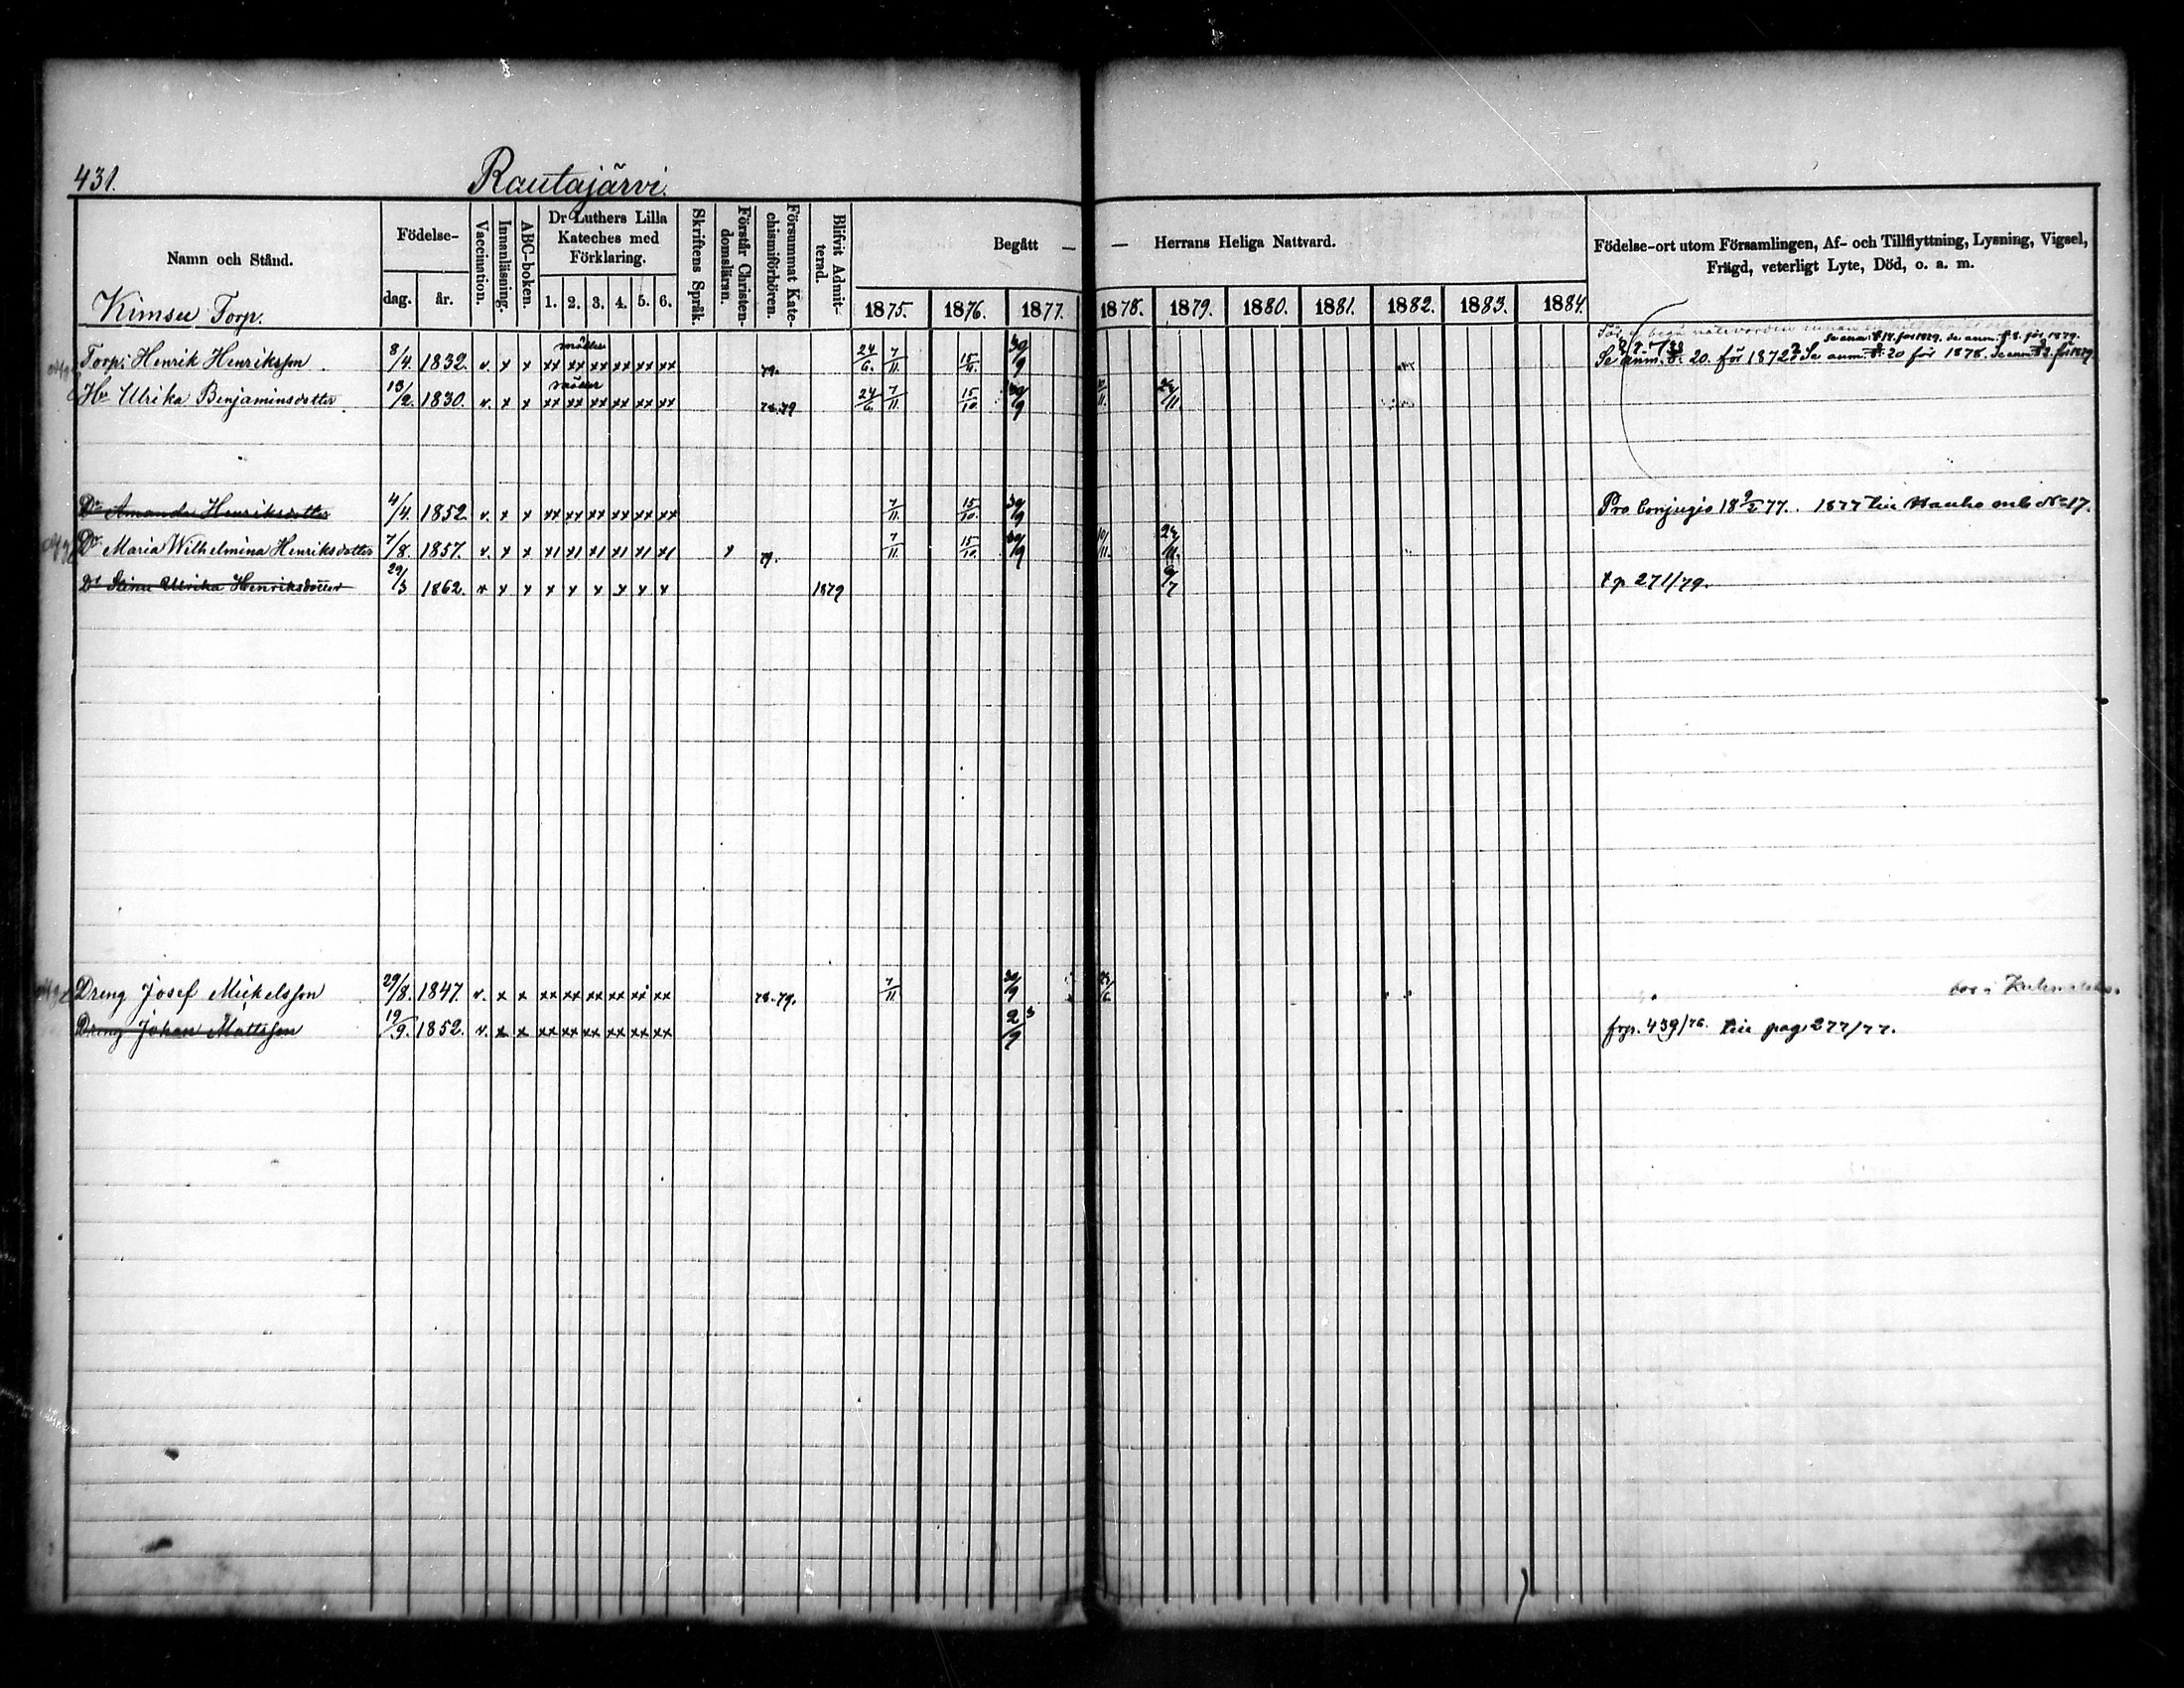 431. Rautajärvi.
Namn och Stånd. Födelse- dag. år. Vaccination. Innanläsning. ABC-boken. Dr Luthers Lilla Kateches med Förklaring. 1. 2. 3. 4. 5. 6. Skriftens Språk. Förstår Christendomsläran. Försummat Katechismiförhören. Blifvit Admitterad. Begått — — Herrans Heliga Nattvard. Födelse-ort utom Församlingen, Af- och Tillflyttning, Lysning, Vigsel, Frägd, veterligt Lyte, Död, o. a. m.
1875. 1876. 1877. 1878. 1879. 1880. 1881. 1882. 1883. 1884.
Kimsu Torp.
Torp. Henrik Henriksson 8/4. 1832. v. x x xx xx xx xx xx xx 79. 24/6. 7/11. 30/9 Se anm. 20. för 1872. Se anm. 20 för 1878.
Hu Ulrika Benjaminsdotter 13/2. 1830. v. x x xx xx xx xx xx xx 78.79 24/6. 7/11. 15/10. 30/9
Dr Amanda Henriksdotter 4/4. 1852. v. x x xx xx xx xx xx xx 7/11. 15/10. 30/9 Pro Conjugio 18 9/2 77. 1877 Hauho No 17.
Dr Maria Wilhelmina Henriksdotter 7/8. 1857. v. x x x1 x1 x1 x1 x1 x1 x 79. 7/11. 15/10. 30/9 10/11.
Dr Stina Ulrika Henriksdotter 29/3 1862. v x x x x x x x x 1879 9/7 t p 271/79.
Dreng Josef Mickelsson 29/8. 1847. v. x x xx xx xx xx xx xx 78.79. 7/11 30/9
Dreng Johan Mattsson 19/9. 1852. v. x x xx xx xx xx xx xx frp. 439/76. pag. 277/77.